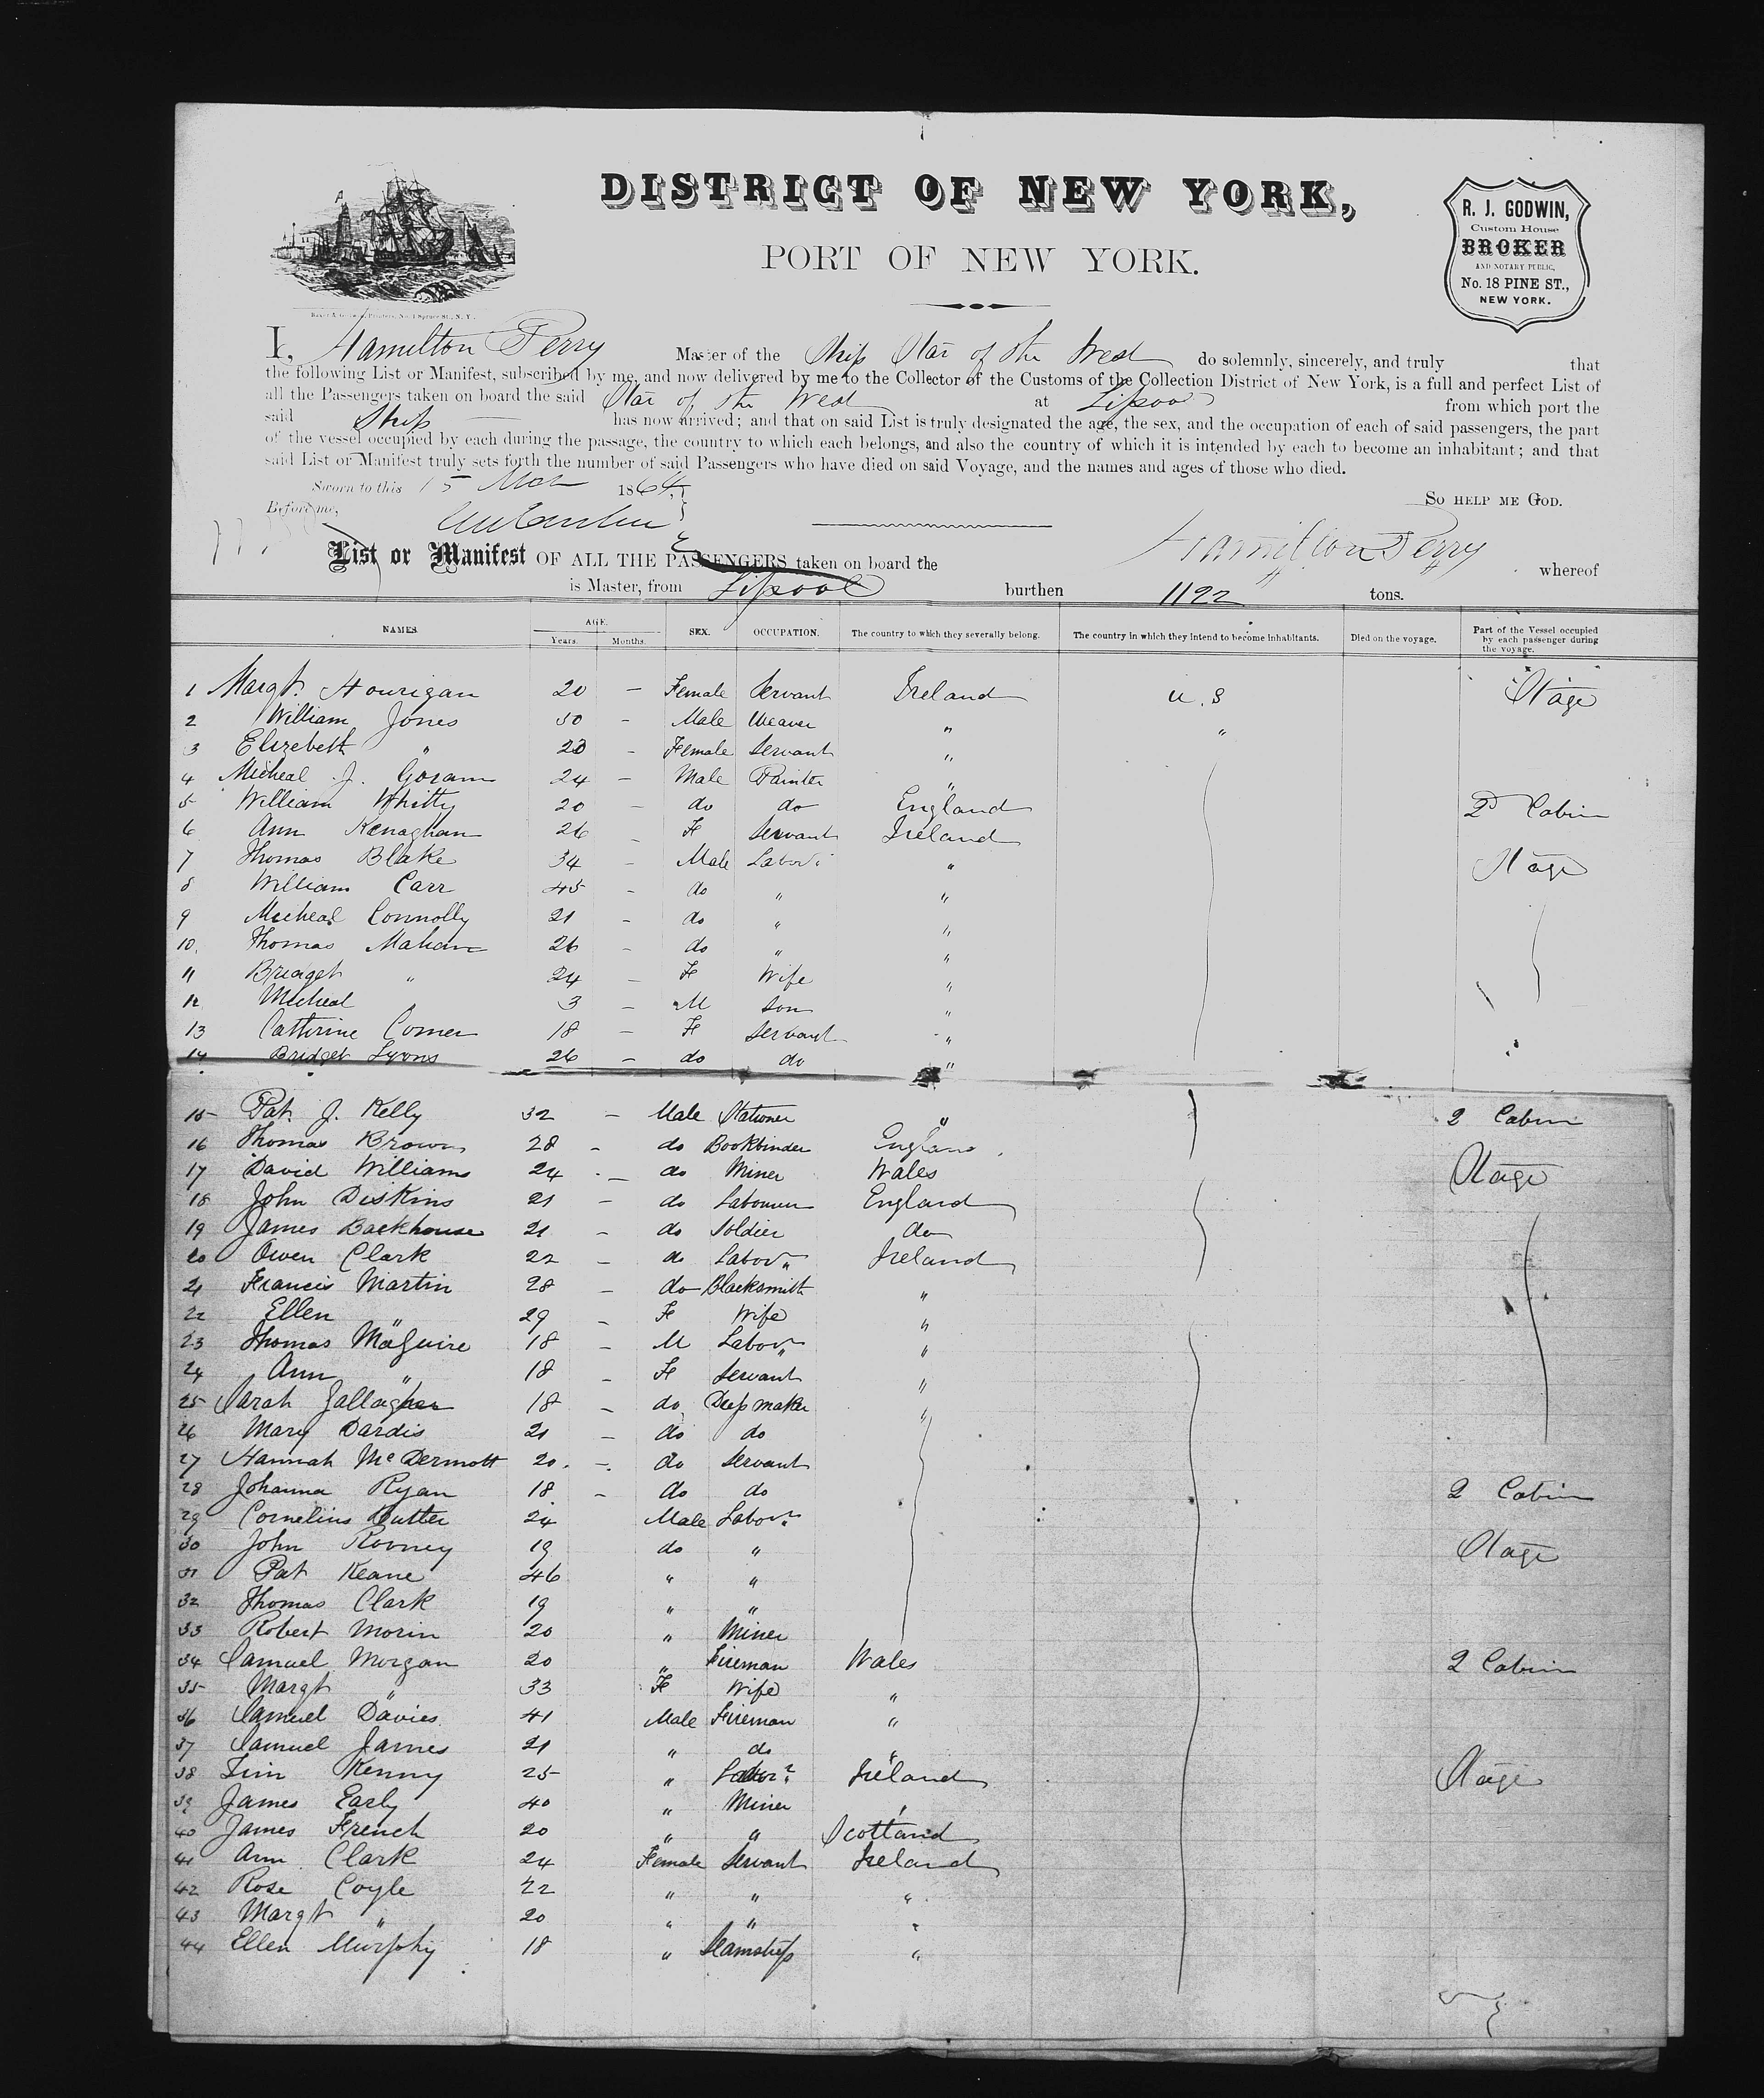 DISTRICT OF NEW YORK,
PORT OF NEW YORK.
R. J. GODWIN,
Custom House
BROKER
AND NOTARY PUBLIC,
No. 18 PINE ST.,
NEW YORK.
Baker & Godwin, Printers, No. 1 Spruce St., N. Y.
I, Hamilton Perry Master of the Ship Star of the West do solemnly, sincerely, and truly that
the following List or Manifest, subscribed by me, and now delivered by me to the Collector of the Customs of the Collection District of New York, is a full and perfect List of
all the Passengers taken on board the said Star of the West at Lipool from which port the
said Ship has now arrived; and that on said List is truly designated the age, the sex, and the occupation of each of said passengers, the part
of the vessel occupied by each during the passage, the country to which each belongs, and also the country of which it is intended by each to become an inhabitant; and that
said List or Manifest truly sets forth the number of said Passengers who have died on said Voyage, and the names and ages of those who died.
Sworn to this 15 Mch 1864,
So help me God.
Before me,
Hamilton Perry
List or Manifest OF ALL THE PASSENGERS taken on board the whereof
is Master, from Lipool burthen 1122 tons.
NAMES. AGE. Years. Months. SEX. OCCUPATION. The country to which they severally belong. The country in which they intend to become inhabitants. Died on the voyage. Part of the Vessel occupied by each passenger during the voyage.
1 Margt. Hourigan 20 – Female Servant Ireland U.S Stage
2 William Jones 30 – Male Weaver " "
3 Elizebeth " 20 – Female Servant "
4 Micheal J. Goram 24 – Male Painter "
5 William Whitty 20 – do do England 2d Cabin
6 Ann Kenaghan 26 – F Servant Ireland
7 Thomas Blake 34 – Male Labor. " Stage
8 William Carr 45 – do " "
9 Micheal Connolly 21 – do " "
10. Thomas Mahan 26 – do " "
11 Bridget " 24 – F Wife "
12 Micheal " 3 – M Son "
13 Catherine Comer 18 – F Servant "
14 Bridget Lyons 26 – do do "
15 Pat. J. Kelly 32 – Male Stationer " 2 Cabin
16 Thomas Brown 28 – do Bookbinder England
17 David Williams 24 – do Miner Wales Stage
18 John Diskins 21 – do Labourer England
19 James Backhouse 21 – do Soldier do
20 Owen Clark 22 – do Labor. Ireland
21 Francis Martin 28 – do Blacksmith "
22 Ellen " 29 – F Wife "
23 Thomas Maguire 18 – M Labor. "
24 Ann " 18 – F Servant "
25 Sarah Gallagher 18 – do Dressmaker "
26 Mary Dardis 21 – do do
27 Hannah McDermott 20. – do Servant
28 Johanna Ryan 18 – do do 2 Cabin
29 Cornelius Butter 24 Male Labor.
30 John Rooney 19 do " Stage
31 Pat Keane 46 " "
32 Thomas Clark 19 " "
33 Robert Morin 20 " Miner
34 Samuel Morgan 20 " Fireman Wales 2 Cabin
35 Margt " 33 F Wife "
36 Samuel Davies 41 Male Fireman "
37 Samuel James 21 " do "
38 Tim Kenny 25 " Labor. Ireland Stage
39 James Early 40 " Miner "
40 James French 20 " " Scotland
41 Ann Clark 24 Female Servant Ireland
42 Rose Coyle 22 " " "
43 Margt " 20 " " "
44 Ellen Murphy 18 " Seamstress "